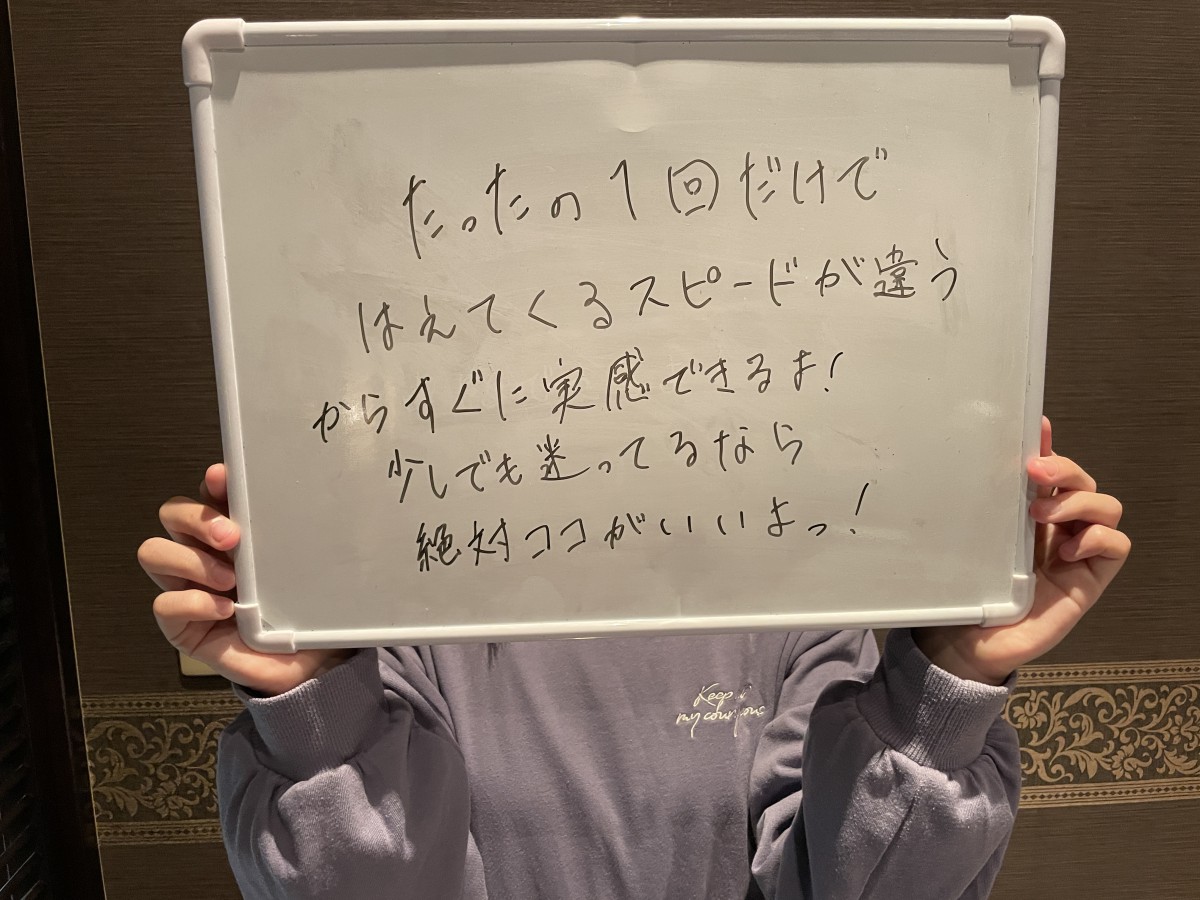 たったの1回だけで
はえてくるスピードが違う
からすぐに実感できるよ!
少しでも迷ってるなら
絶対ココがいいよっ!
Keep
my